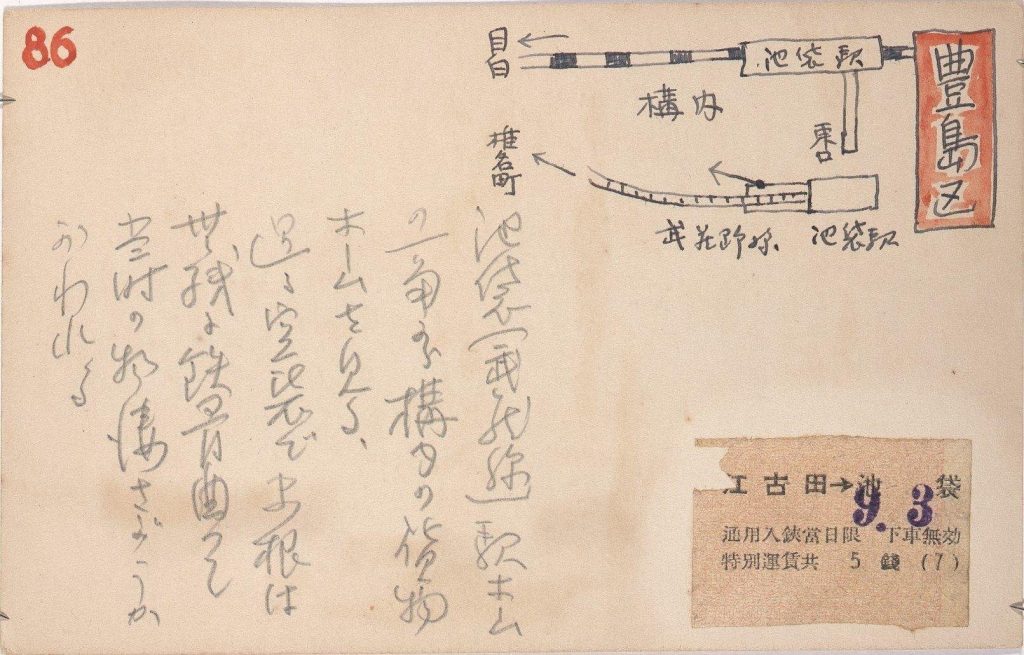 86
豊島区
目白
池袋駅
構内
東口
椎名町
武蔵野線 池袋駅
池袋(武蔵野線)駅ホーム
の一角から構内の貨物
ホームを見る、
過る空襲で屋根は
無残に鉄骨曲って
当時の物凄さがうか
がわれる
江古田→池袋
9. 3
通用入鋏當日限 下車無効
特別運賃共 5 錢 (7)